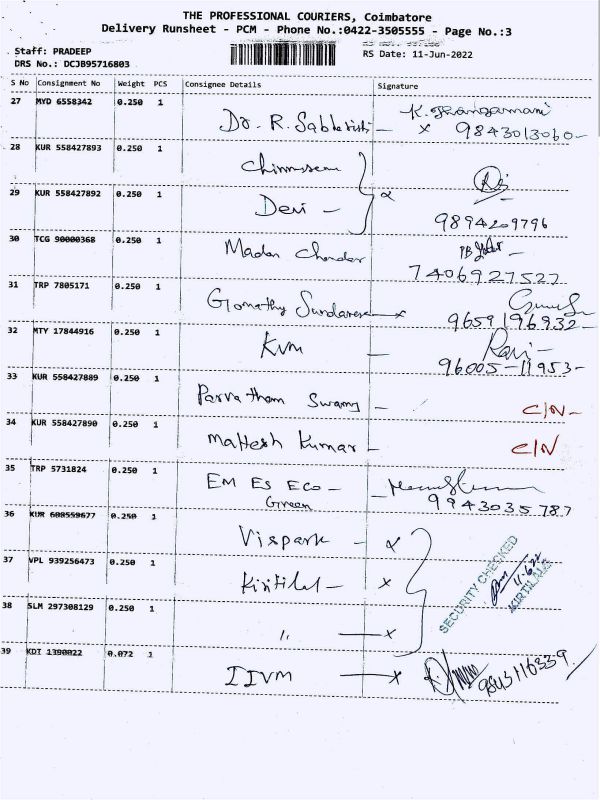 THE PROFESSIONAL COURIERS, Coimbatore
Delivery Runsheet - PCM - Phone No.:0422-3505555 - Page No.:3
Staff: PRADEEP
DRS No.: DCJB95716803
RS Date: 11-Jun-2022
S No Consignment No Weight PCS Consignee Details Signature
27 MYD 6558342 0.250 1 Dr. R. x 9843013060
28 KUR 558427893 0.250 1
29 KUR 558427892 0.250 1 Devi - 9894209796
30 TCG 90000368 0.250 1 Madan Chander 7406927527
31 TRP 7805171 0.250 1 Gomathy Sundaresh x 9659196932
32 MTY 17844916 0.250 1 KVM - Ravi
96005-11953-
33 KUR 558427889 0.250 1 Parvatham Swamy - C/N-
34 KUR 558427890 0.250 1 Mahesh Kumar - C/N
35 TRP 5731824 0.250 1 EM ES ECO -
Green 9943035787
36 KUR 608559677 0.250 1 Vispark -
37 VPL 939256473 0.250 1 Kirtilal - x
SECURITY CHECKED
KIRTILALS
38 SLM 297308129 0.250 1 〃 - x
39 KDT 1390822 0.072 1 IIVM - x 9843116339